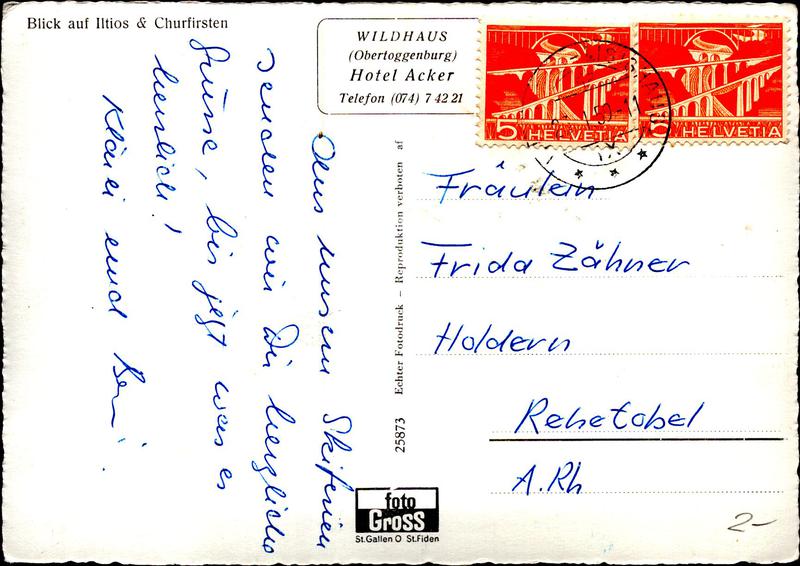 Blick auf Iltios & Churfirsten
WILDHAUS
(Obertoggenburg)
Hotel Acker
Telefon (074) 7 42 21
5 HELVETIA
5 HELVETIA
Aus unsern Skiferien
senden wir Dir herzliche
Grüsse, bis jetzt war es
herrlich!
Kläri und
Echter Fotodruck – Reproduktion verboten af
25873
foto
Gross
St.Gallen O St.Fiden
Fräulein
Frida Zähner
Holdern
Rehetobel
A.Rh
2-